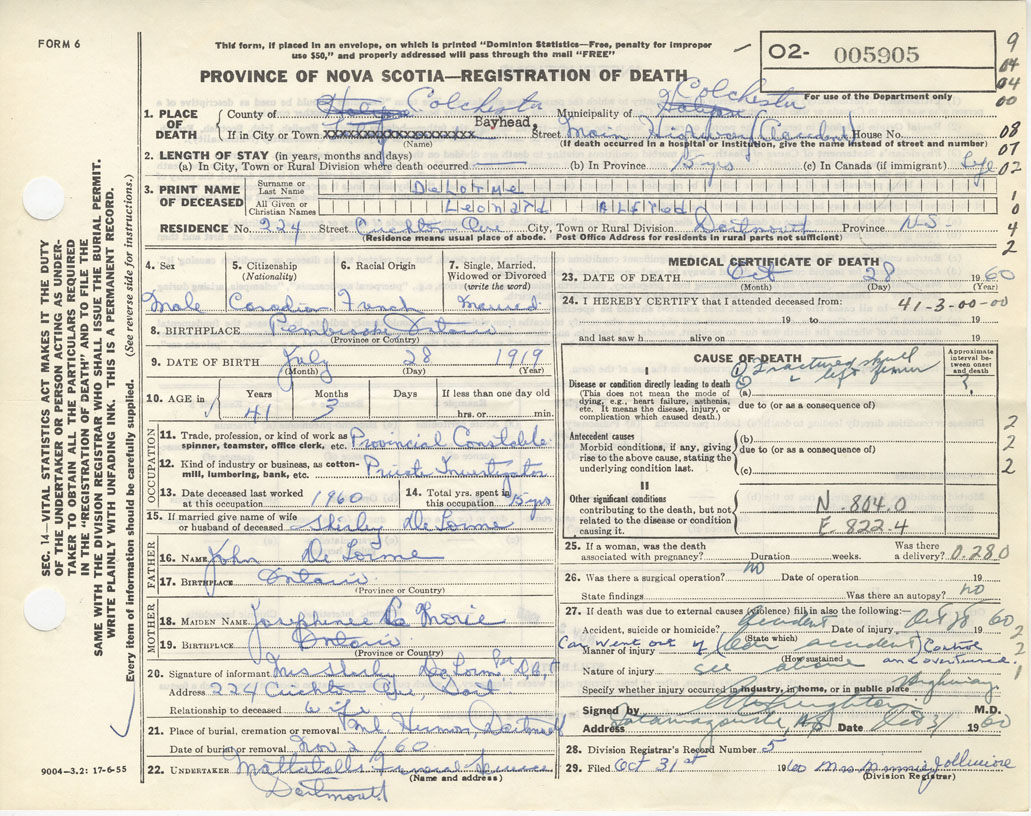 FORM 6
This form, if placed in an envelope, on which is printed "Dominion Statistics—Free, penalty for improper
use $50," and properly addressed will pass through the mail "FREE"
O2- 005905
For use of the Department only
PROVINCE OF NOVA SCOTIA—REGISTRATION OF DEATH
9
04
04
00
08
07
02
1
0
4
2
1. PLACE OF DEATH
County of Halifax Colchester Municipality of Halifax Colchester
If in City or Town xxxxxxxxxxxxxxxxxxxx Bayhead, Street Main Highway (Accident) House No.
(Name) (If death occurred in a hospital or institution, give the name instead of street and number)
2. LENGTH OF STAY (in years, months and days)
(a) In City, Town or Rural Division where death occurred (b) In Province 15 yrs (c) In Canada (if immigrant) Life
3. PRINT NAME OF DECEASED
Surname or Last Name DeLorme
All Given or Christian Names Leonard Alfred
RESIDENCE No. 224 Street Crichton Ave City, Town or Rural Division Dartmouth Province N-S-
(Residence means usual place of abode. Post Office Address for residents in rural parts not sufficient)
4. Sex
Male
5. Citizenship (Nationality)
Canadian
6. Racial Origin
French
7. Single, Married, Widowed or Divorced (write the word)
Married
8. BIRTHPLACE Ontario
(Province or Country)
9. DATE OF BIRTH July 28 1919
(Month) (Day) (Year)
10. AGE in Years Months Days If less than one day old
41 3 hrs. or min.
OCCUPATION
11. Trade, profession, or kind of work as spinner, teamster, office clerk, etc. Provincial Constable
12. Kind of industry or business, as cotton-mill, lumbering, bank, etc. Private Investigator
13. Date deceased last worked at this occupation 1960
14. Total yrs. spent in this occupation 15 yrs
15. If married give name of wife or husband of deceased Shirley DeLorme
FATHER
16. NAME John DeLorme
17. BIRTHPLACE Ontario
(Province or Country)
MOTHER
18. MAIDEN NAME Josephinee
19. BIRTHPLACE Ontario
(Province or Country)
20. Signature of informant Mrs DeLorme Per
Address 224 Crichton Ave Dart
Relationship to deceased wife
21. Place of burial, cremation or removal Mt. Hermon, Dartmouth
Date of burial or removal Nov 2 /60
22. UNDERTAKER Mattatalls Funeral Service
(Name and address)
Dartmouth
9004—3.2: 17-6-55
MEDICAL CERTIFICATE OF DEATH
23. DATE OF DEATH Oct 28 1960
(Month) (Day) (Year)
24. I HEREBY CERTIFY that I attended deceased from: 41-3-00-00
19 to 19
and last saw h alive on 19
CAUSE OF DEATH
Approximate interval between onset and death
I
Disease or condition directly leading to death
(This does not mean the mode of dying, e.g., heart failure, asthenia, etc. It means the disease, injury, or complication which caused death.)
(1) Fractured skull
(2) " left femur
(a)
due to (or as a consequence of)
Antecedent causes
Morbid conditions, if any, giving rise to the above cause, stating the underlying condition last.
(b)
due to (or as a consequence of)
(c)
2
2
2
II
Other significant conditions contributing to the death, but not related to the disease or condition causing it.
N. 804.0
E. 822.4
25. If a woman, was the death associated with pregnancy? Duration weeks. Was there a delivery? 0.280
26. Was there a surgical operation? no Date of operation 19
State findings Was there an autopsy? no
27. If death was due to external causes (violence) fill in also the following:—
Accident, suicide or homicide? Accident Date of injury Oct 28 1960
(State which)
Manner of injury (Car accident) Car went out of Control and overturned
(How sustained)
Nature of injury see above
2
2
1
Specify whether injury occurred in industry, in home, or in public place Highway
Signed by M.D.
Address Tatamagouche, N.S Date Oct 31 1960
28. Division Registrar's Record Number 5
29. Filed Oct 31st 1960 Mrs Minnie
(Division Registrar)
SEC. 14—VITAL STATISTICS ACT MAKES IT THE DUTY
OF THE UNDERTAKER OR PERSON ACTING AS UNDER-
TAKER TO OBTAIN ALL THE PARTICULARS REQUIRED
IN THE "REGISTRATION OF DEATH" AND TO FILE THE
SAME WITH THE DIVISION REGISTRAR WHO SHALL ISSUE THE BURIAL PERMIT.
WRITE PLAINLY WITH UNFADING INK. THIS IS A PERMANENT RECORD.
Every item of information should be carefully supplied. (See reverse side for instructions.)